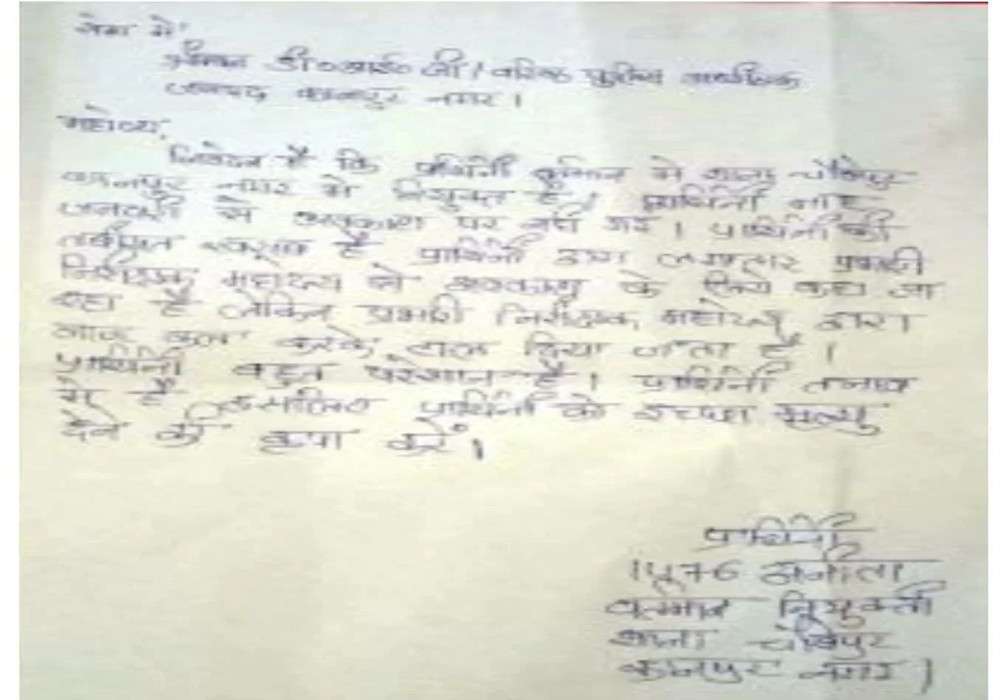 सेवा में,
श्रीमान डी०आई०जी / वरिष्ठ पुलिस अधीक्षक
जनपद कानपुर नगर।
महोदय,
निवेदन है कि प्रार्थिनी वर्तमान में थाना चौबेपुर
कानपुर नगर में नियुक्त है। प्रार्थिनी माह
जनवरी से अवकाश पर नहीं गई। प्रार्थिनी की
तबीयत खराब है प्रार्थिनी द्वारा लगातार प्रभारी
निरीक्षक महोदय से अवकाश के लिये कहा जा
रहा है लेकिन प्रभारी निरीक्षक महोदय द्वारा
आज कल करके टाल दिया जाता है।
प्रार्थिनी बहुत परेशान है। प्रार्थिनी तनाव
में है इसलिए प्रार्थिनी को इच्छा मृत्यु
देने की कृपा करें।
प्रार्थिनी
अनीता
वर्तमान नियुक्ती
थाना चौबेपुर
कानपुर नगर।